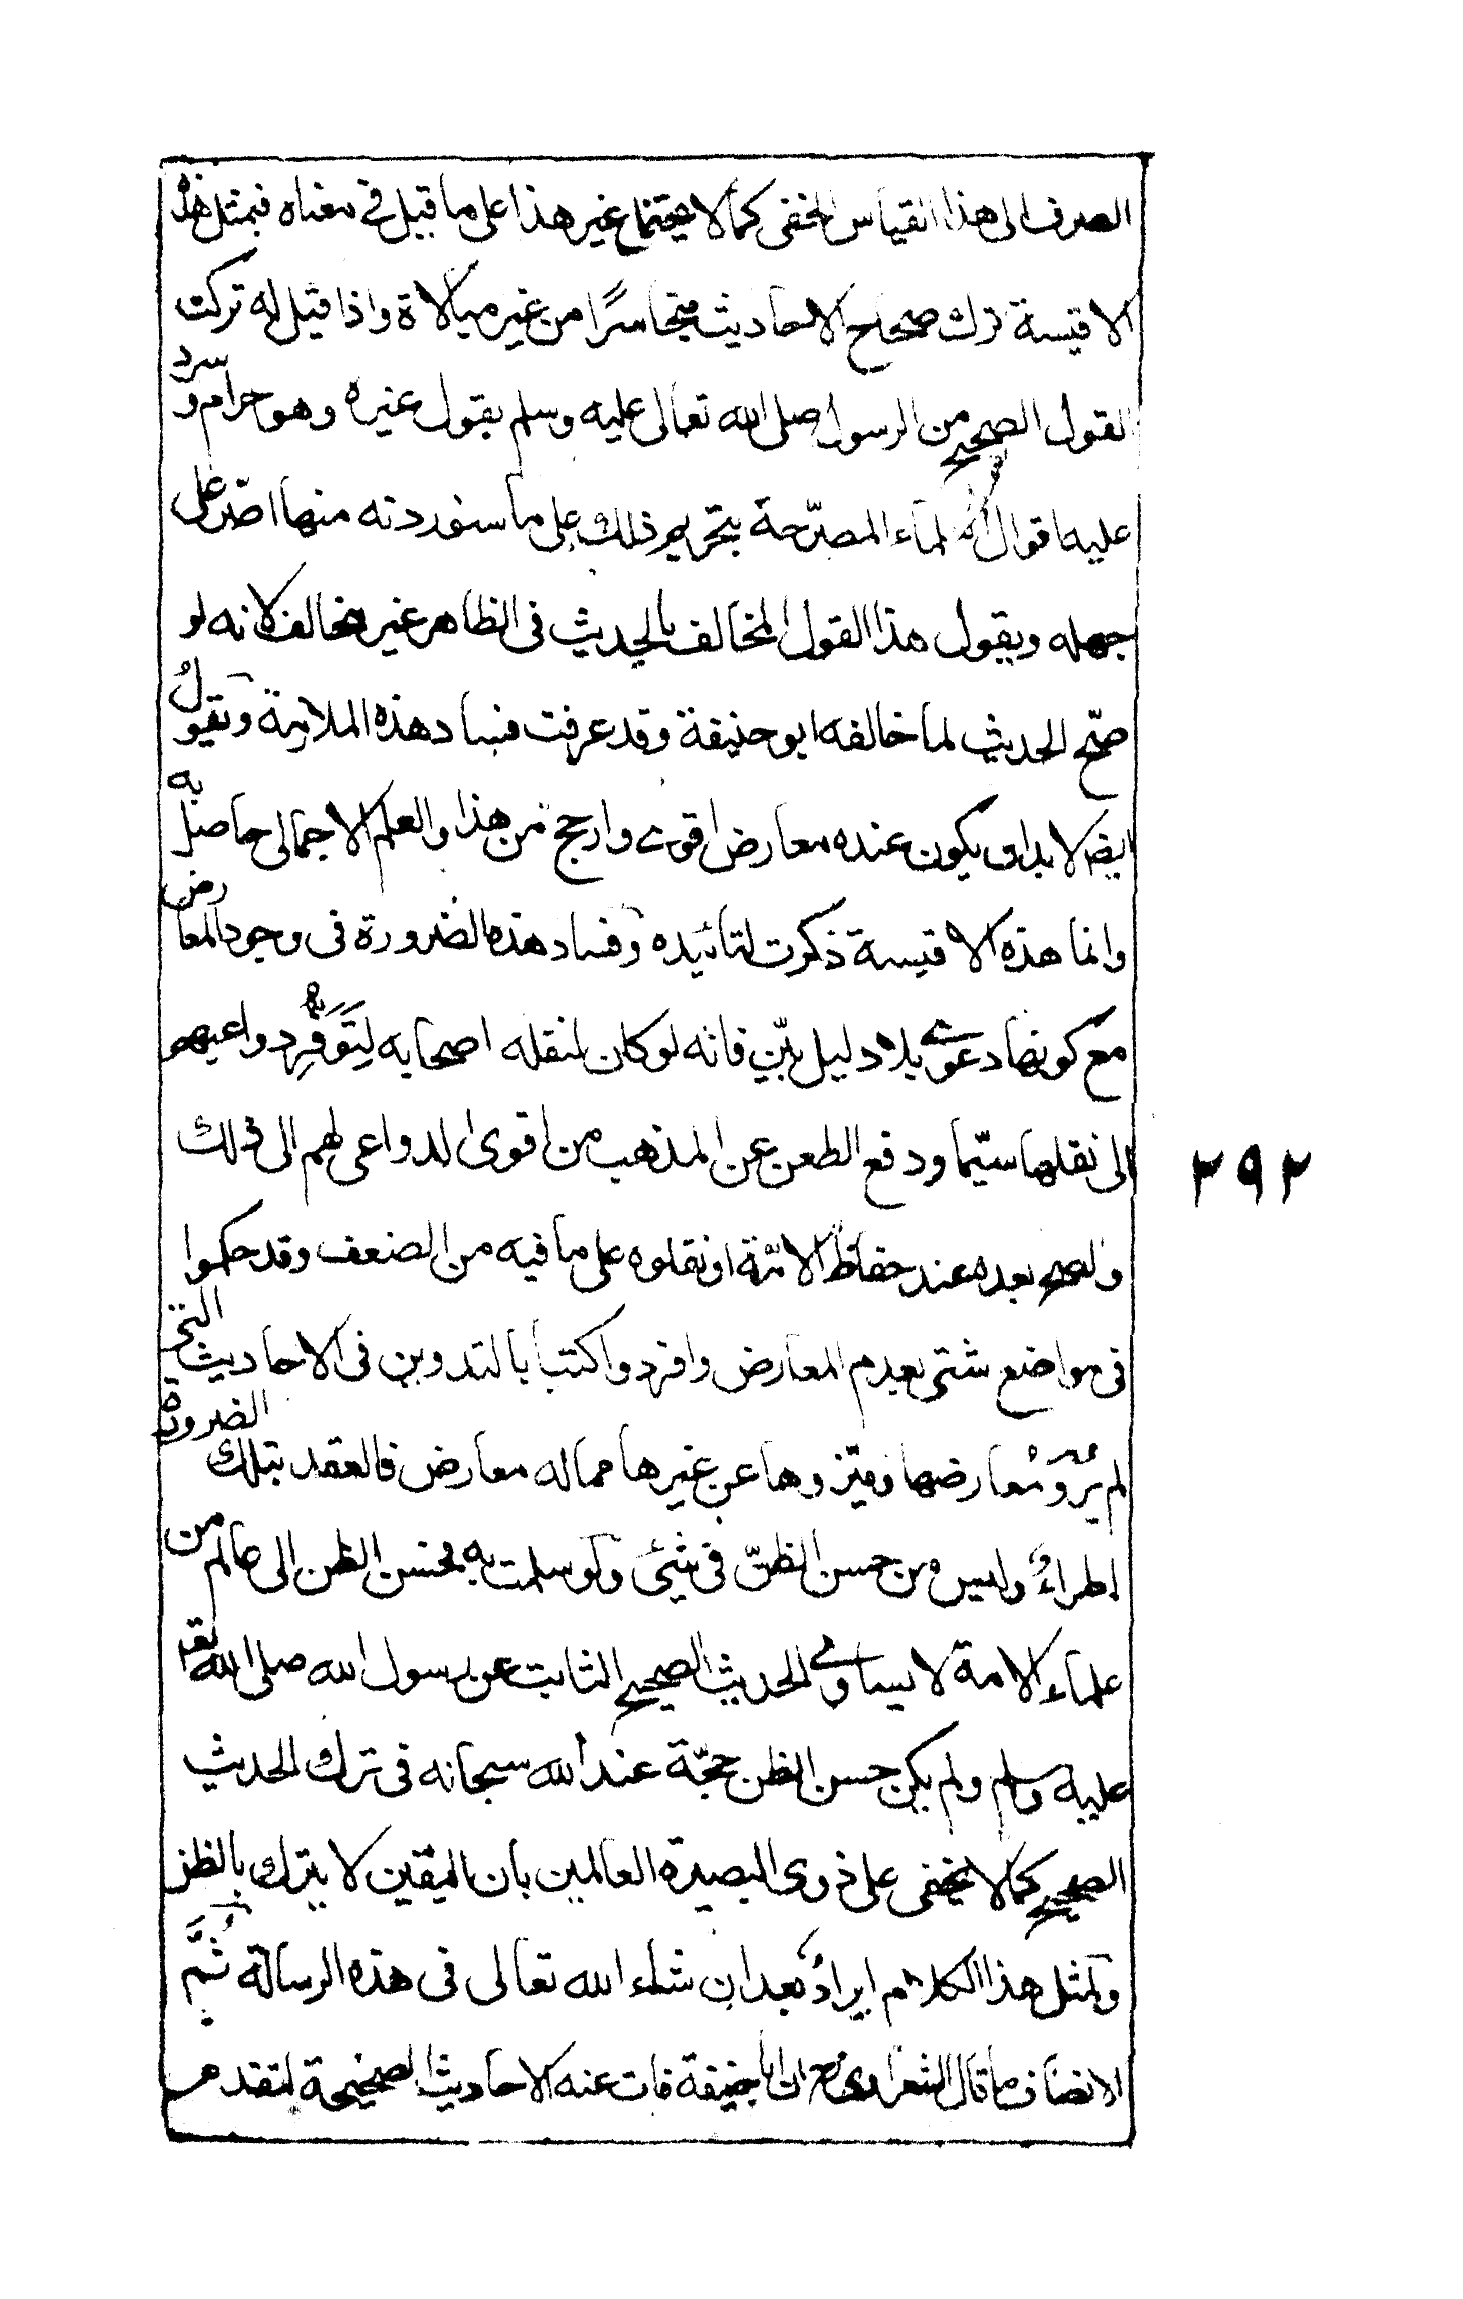 الصرف الى هذا القياس الخفى كما لا يحتاج غير هذا على ما قيل فى معناه فبمثل هذه
الاقيسة ترك صحاح الاحاديث متجاسرًا من غير مبالاة واذا قيل له تركت
القول الصحيح من الرسول صلى الله تعالى عليه وسلم بقول غيره وهو حرام و سرد
عليه اقوال العلماء المصرّحة بتحريم ذلك على ما سنوردنه منها اصّر على
جهله ويقول هذا القول المخالف بالحديث فى الظاهر غير مخالف لانه لو
صحّ الحديث لما خالفه ابو حنيفة وقد عرفت فساد هذه الملازمة ويقول
ايضا لا بد ان يكون عنده معارض اقوى وارجح من هذا والعلم الاجمالى حاصل به
وانما هذه الاقيسة ذكرت لتائيده وفساد هذه الضرورة فى وجود المعارض
مع كونها دعوى بلا دليل بيّن فانه لو كان لنقله اصحابه لِتَوَفُّرِ دواعيهم
الى نقلها سيّما ودفع الطعن عن المذهب من اقوى الدواعى لهم الى ذلك
ولصح بعده عند حفاظ الائمة او نقلوه على ما فيه من الضعف وقد حكموا
فى مواضع شتى بعدم المعارض وافردوا كتبا بالتدوين فى الاحاديث التى
لم يُرْوَ مُعارضها وميّزوها عن غيرها مما له معارض فالعقد بتلك الضرورة
اطراءٌ وليس من حسن الظنّ فى شئ ولو سلمت به فحسن الظن الى عالم من
علماء الامة لا يساوى الحديث الصحيح الثابت عن رسول الله صلى الله تعالى
عليه وسلم ولم يكن حسن الظن حجّة عند الله سبحانه فى ترك الحديث
الصحيح كما لا يخفى على ذوى البصيرة العالمين بان اليقين لا يترك بالظن
ولمثل هذا الكلام ايرادٌ بعد ان شاء الله تعالى فى هذه الرسالة ثُمَّ
الانصاف ما قال الشعراوى رح ان ابا حنيفة فات عنه الاحاديث الصحيحة لتقدم
٢٩٢